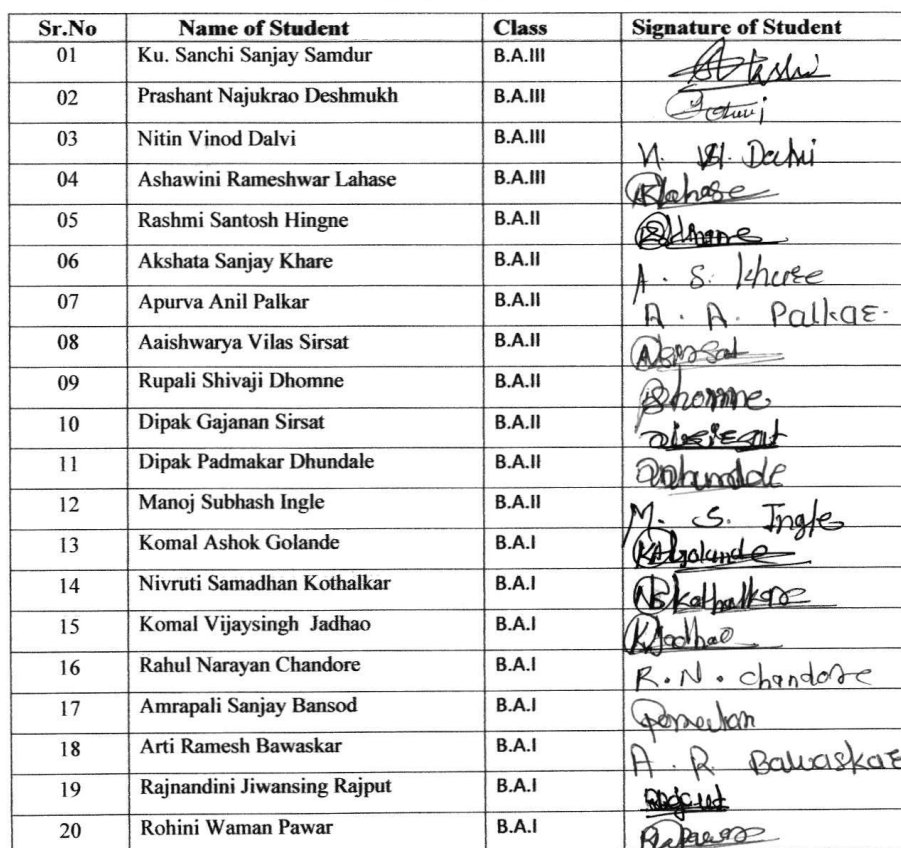 Sr.No Name of Student Class Signature of Student
01 Ku. Sanchi Sanjay Samdur B.A.III
02 Prashant Najukrao Deshmukh B.A.III
03 Nitin Vinod Dalvi B.A.III N.
04 Ashawini Rameshwar Lahase B.A.III
05 Rashmi Santosh Hingne B.A.II
06 Akshata Sanjay Khare B.A.II A. S.
07 Apurva Anil Palkar B.A.II A. A.
08 Aaishwarya Vilas Sirsat B.A.II
09 Rupali Shivaji Dhomne B.A.II
10 Dipak Gajanan Sirsat B.A.II
11 Dipak Padmakar Dhundale B.A.II
12 Manoj Subhash Ingle B.A.II M. S. Ingle
13 Komal Ashok Golande B.A.I KAGolande
14 Nivruti Samadhan Kothalkar B.A.I
15 Komal Vijaysingh Jadhao B.A.I KJadhao
16 Rahul Narayan Chandore B.A.I R.N. chandore
17 Amrapali Sanjay Bansod B.A.I
18 Arti Ramesh Bawaskar B.A.I A. R. Bawaskar
19 Rajnandini Jiwansing Rajput B.A.I
20 Rohini Waman Pawar B.A.I